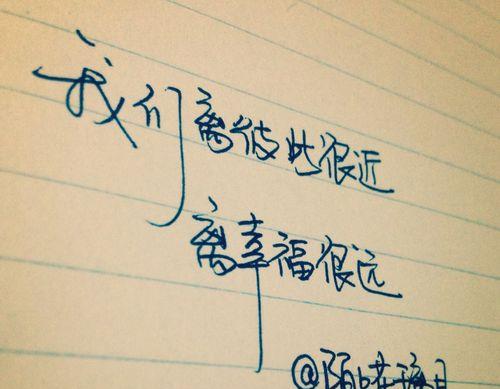 我们离彼此很近
离幸福很远
@陌